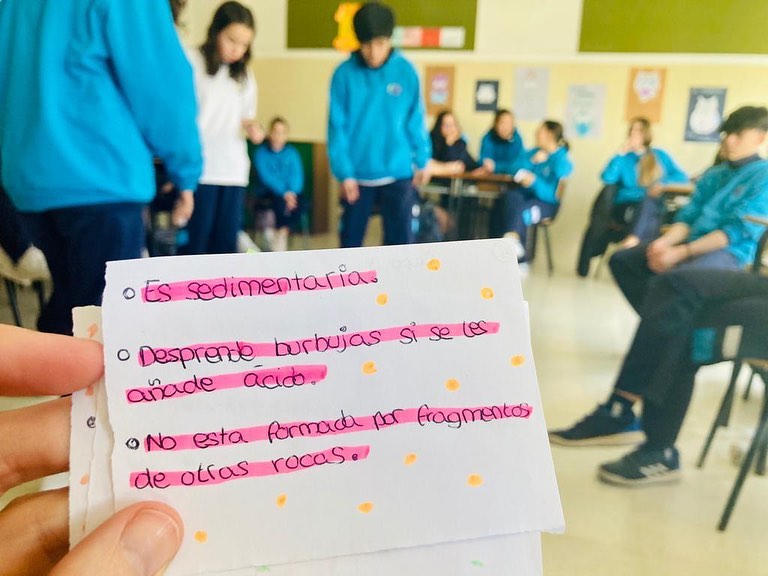 Es sedimentaria.
Desprende burbujas si se les
añade ácido.
No esta formada por fragmentos
de otras rocas.